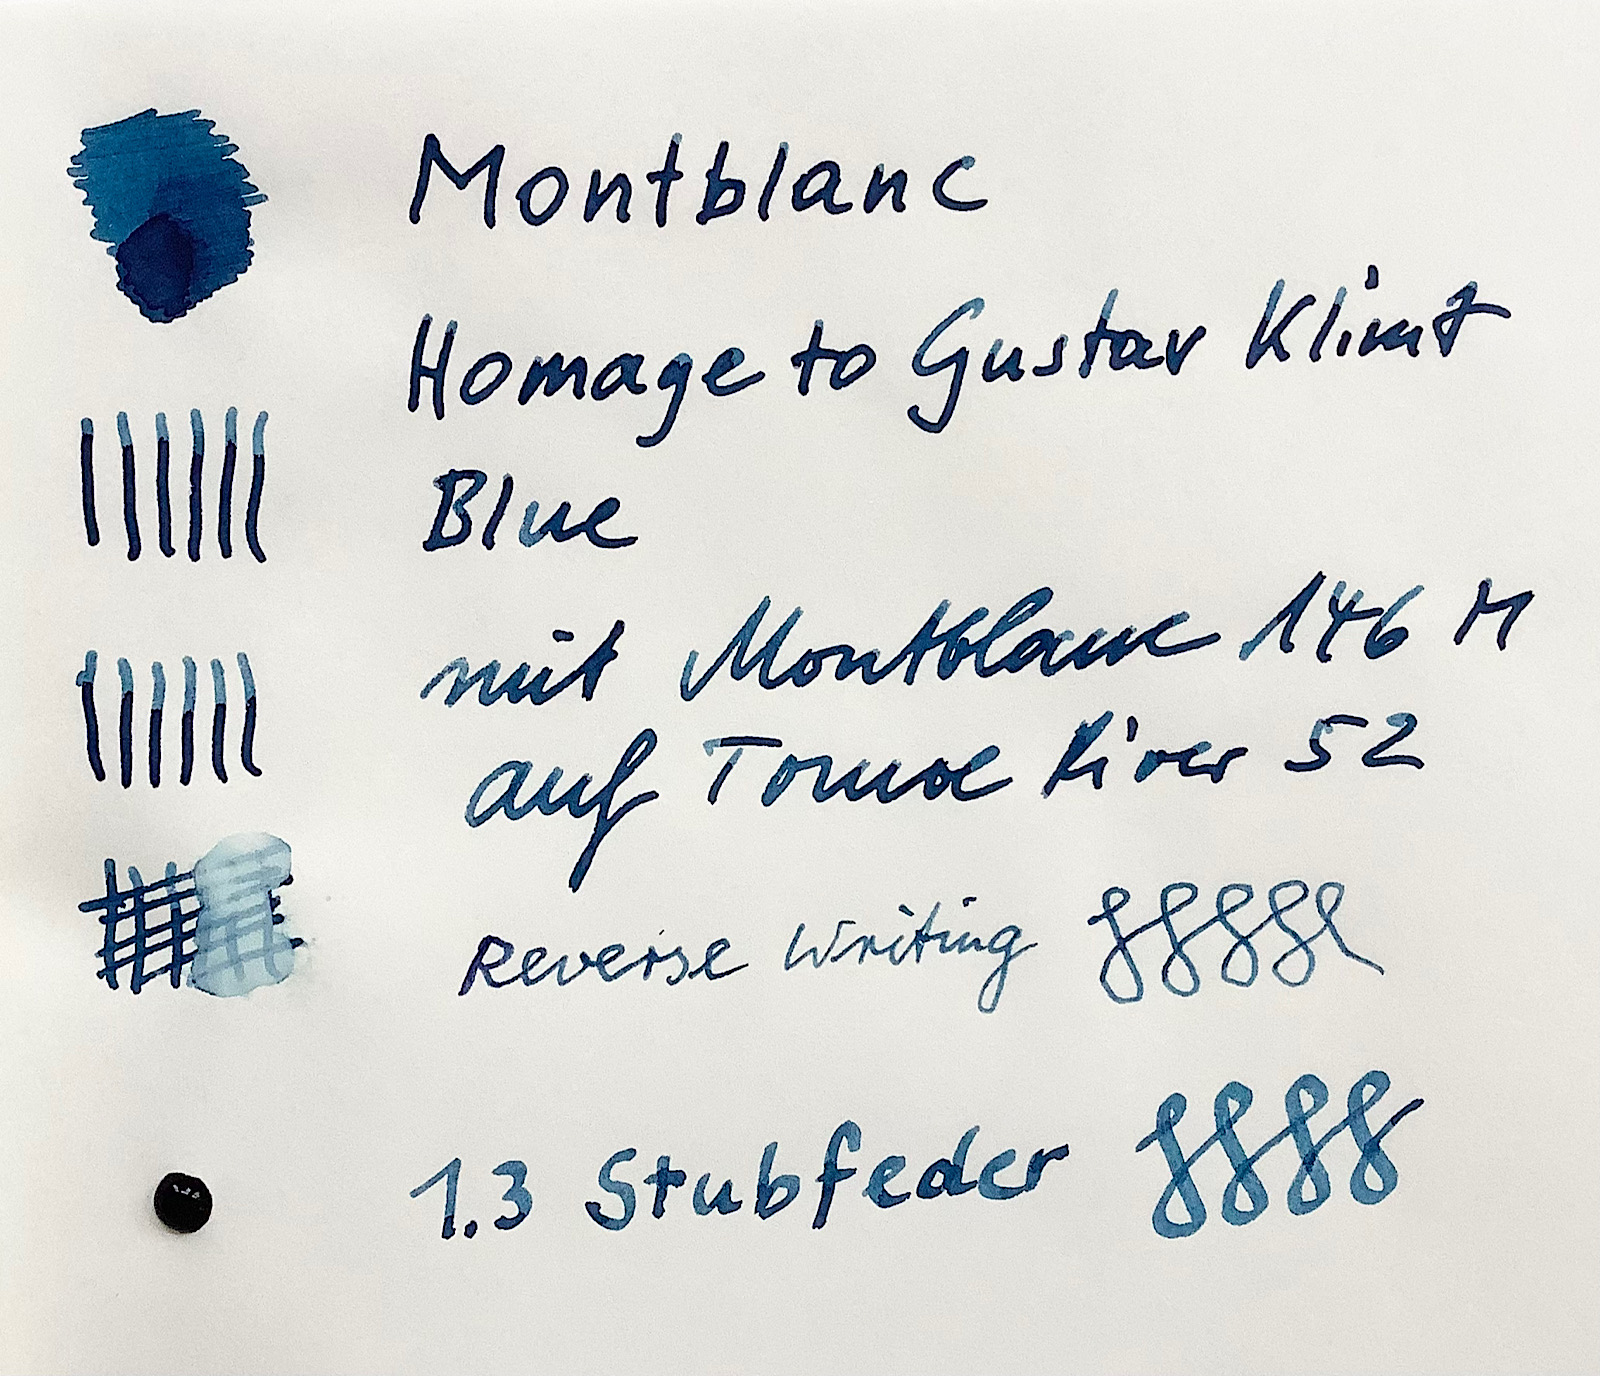 Montblanc
Homage to Gustav Klimt
Blue
mit Montblanc 146 M
auf Tomoe River 52
Reverse Writing
1.3 Stubfeder